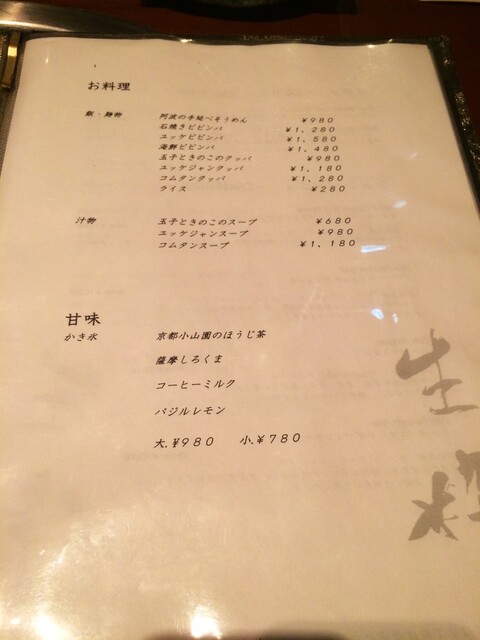 お料理
飯・麺物 阿波の手延べそうめん ¥980
石焼きビビンバ ¥1,280
ユッケビビンバ ¥1,580
海鮮ビビンバ ¥1,480
玉子ときのこのクッパ ¥980
ユッケジャンクッパ ¥1,180
コムタンクッパ ¥1,280
ライス ¥280
汁物 玉子ときのこのスープ ¥680
ユッケジャンスープ ¥980
コムタンスープ ¥1,180
甘味
かき氷 京都小山園のほうじ茶
薩摩しろくま
コーヒーミルク
バジルレモン
大.¥980 小.¥780
生